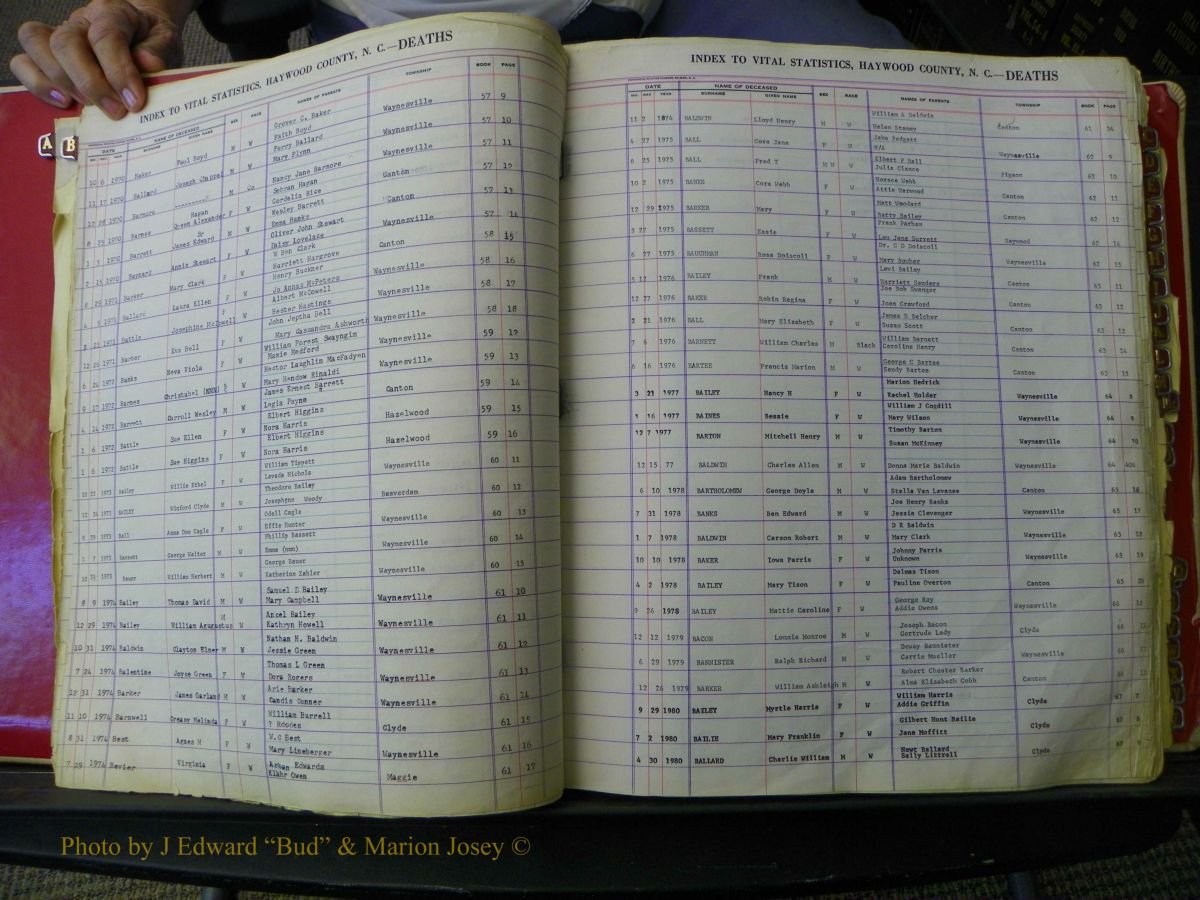 A B
INDEX TO VITAL STATISTICS, HAYWOOD COUNTY, N. C.—DEATHS
DATE NAME OF DECEASED SEX RACE NAMES OF PARENTS TOWNSHIP BOOK PAGE
SURNAME GIVEN NAME
10 6 1970 Baker Paul Boyd M W Grover C. Baker Waynesville 57 9
Faith Boyd
11 17 1970 Ballard Joseph M W Perry Ballard Waynesville 57 10
Mary Flynn
1970 Barmore M Nancy Jane Barmore Waynesville 57 11
8 25 1970 Barnes Hagan Queen Alexander F W Sebran Hagan Canton 57 12
Cordelia Rice
1970 Barrett James Edward Sr M W Wesley Barrett Canton 57 13
Emma Banks
2 15 1970 Baynard Annie Stewart F W Oliver John Stewart Waynesville 57 14
Daisy Lovelace
8 29 1971 Barker Mary Clark F W W Ben Clark Canton 58 15
Harriett Hargrove
1971 Ballard Laura Ellen F W Henry Buckner Waynesville 58 16
Jo Annas McPeters
1971 Battle Josephine McDowell F W Albert McDowell Waynesville 58 17
Hester Hastings
1971 Barber Eva Bell F W John Jeptha Bell Waynesville 58 18
Mary Cassandra Ashworth
6 24 1972 Banks Neva Viola F W William Forest Swayngin Waynesville 59 12
Masie Medford
9 17 1972 Barnes Christabel (NMN) F W Hector Laughlin MacFadyen Waynesville 59 13
Mary Hendow Rinaldi
4 14 1972 Barrett Carroll Wesley M W James Ernest Barrett Canton 59 14
Logia Payne
1 6 1972 Battle Sue Ellen F W Elbert Higgins Hazelwood 59 15
Nora Harris
1 6 1972 Battle Sue Higgins F W Elbert Higgins Hazelwood 59 16
Nora Harris
10 22 1973 Bailey Willie Ethel F W William Tippett Waynesville 60 11
Lavada Nichols
12 24 1973 BAILEY Winford Clyde M W Theodore Bailey Beaverdam 60 12
Josephene Woody
8 29 1973 Ball Anna Dee Cagle F W Odell Cagle Waynesville 60 13
Effie Hunter
1 7 1973 Bassett George Walter M W Phillip Bassett Waynesville 60 14
Emma (nmn)
10 31 1973 Bauer William Herbert M W George Bauer Waynesville 60 15
Katherine Zahler
8 9 1974 Bailey Thomas David M W Samuel D Bailey Waynesville 61 10
Mary Campbell
12 29 1974 Bailey William Agugustus M W Ancel Bailey Waynesville 61 11
Kathryn Howell
10 31 1974 Baldwin Clayton Elmer M W Nathan H. Baldwin Waynesville 61 12
Jessie Green
7 24 1974 Balentine Joyce Green F W Thomas L Green Waynesville 61 13
Dora Rogers
12 31 1974 Barker James Garland M W Arle Barker Waynesville 61 14
Candis Conner
11 10 1974 Barnwell Creasy Melinda F W William Burrell Clyde 61 15
? Rdodes
8 31 1974 Best Agnes M F W W.C Best Waynesville 61 16
Mary Lineberger
7 29 1974 Bevier Virginia F W Arban Edwards Maggie 61 17
Klahr Owen
INDEX TO VITAL STATISTICS, HAYWOOD COUNTY, N. C.—DEATHS
DATE NAME OF DECEASED SEX RACE NAMES OF PARENTS TOWNSHIP BOOK PAGE
MO. DAY YEAR SURNAME GIVEN NAME
11 2 1974 BALDWIN Lloyd Henry M W William A Baldwin Canton 61 34
Helen Stamey
4 27 1975 BALL Cora Jane F W Jake Padgett Waynesville 62 9
N/A
6 25 1975 BALL Fred T M W W Elbert F Ball Pigeon 62 10
Julia Clance
10 2 1975 BANKS Cora Webb F W Horace Webb Canton 62 11
Attie Harwood
12 29 1975 BARKER Mary F W Matt Woodard Canton 62 12
Betty Bailey
5 27 1975 BASSETT Essie F W Frank Parham Haywood 62 14
Lou Jane Surrett
6 27 1975 BAUGHMAN Rosa Doiscoll F W Dr. C D Doiscoll Waynesville 62 15
Mary Souher
5 17 1976 BAILEY Frank M W Levi Bailey Canton 63 11
Harriett Sanders
12 27 1976 BAKER Robin Regina F W Joe Bob Swanger Canton 63 12
Joan Crawford
2 21 1976 BALL Mary Elizabeth F W James S Belcher Canton 63 13
Susan Scott
7 6 1976 BARNETT William Charles M Black William Barnett Canton 63 14
Caroline Henry
6 16 1976 BARTEE Francis Marion M W George C Bartee Canton 63 15
Sendy Bartee
3 21 1977 BAILEY Nancy H F W Marion Hedrick Waynesville 64 8
Rachel Holder
1 16 1977 BAINES Bessie F W William J Cogdill Waynesville 64 9
Mary Wilson
12 7 1977 BARTON Mitchell Henry M W Timothy Barton Waynesville 64 10
Susan McKinney
12 15 77 BALDWIN Charles Allen M W Donna Marie Baldwin Waynesville 64 404
6 10 1978 BARTHOLOMEW George Doyle M W Adam Bartholomew Canton 65 16
Stella Van Lavanse
7 31 1978 BANKS Ben Edward M W Joe Henry Banks Waynesville 65 17
Jessie Clevenger
1 7 1978 BALDWIN Carson Robert M W D R Baldwin Canton 65 18
Mary Clark
10 10 1978 BAKER Iowa Parris F W Johnny Parris Waynesville 65 19
Unknown
4 2 1978 BAILEY Mary Tison F W Delmas Tison Canton 65 20
Pauline Overton
9 26 1978 BAILEY Mattie Caroline F W George Ray Waynesville 66
Addie Owens
12 12 1979 BACON Lonnie Monroe M W Joseph Bacon Clyde 66
Gertrude Lady
6 29 1979 BANNISTER Ralph Richard M W Dewey Bannister Waynesville 66
Carrie Mueller
12 26 1979 BARKER William Ashleigh M W Robert Chester Barker Canton 66
Alma Elizabeth Cobb
9 29 1980 BAILEY Myrtle Harris F W William Harris Clyde 67 7
Addie Griffin
7 2 1980 BAILIE Mary Franklin F W Gilbert Hunt Bailie Clyde 67 8
Jane Moffitt
4 30 1980 BALLARD Charlie William M W Newt Ballard Clyde 67 9
Sally Littrell
Photo by J Edward “Bud” & Marion Josey ©